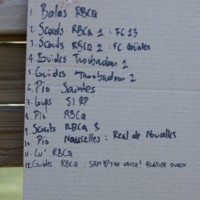 1. Balas RBCQ
2. Scouts RBCQ 1 : FC 13
3. Scouts RBCQ 2 : FC
4. Guides Troubadour 1
5. Guides Troubadour 2
6. Pio Saintes
7. Lups S1 RP
8. Pio RBCQ
9. Scouts RBCQ 3
10. Pio Naucelles : Real de Naucelles
11. Lu' RBCQ
12. Guides RBCQ :